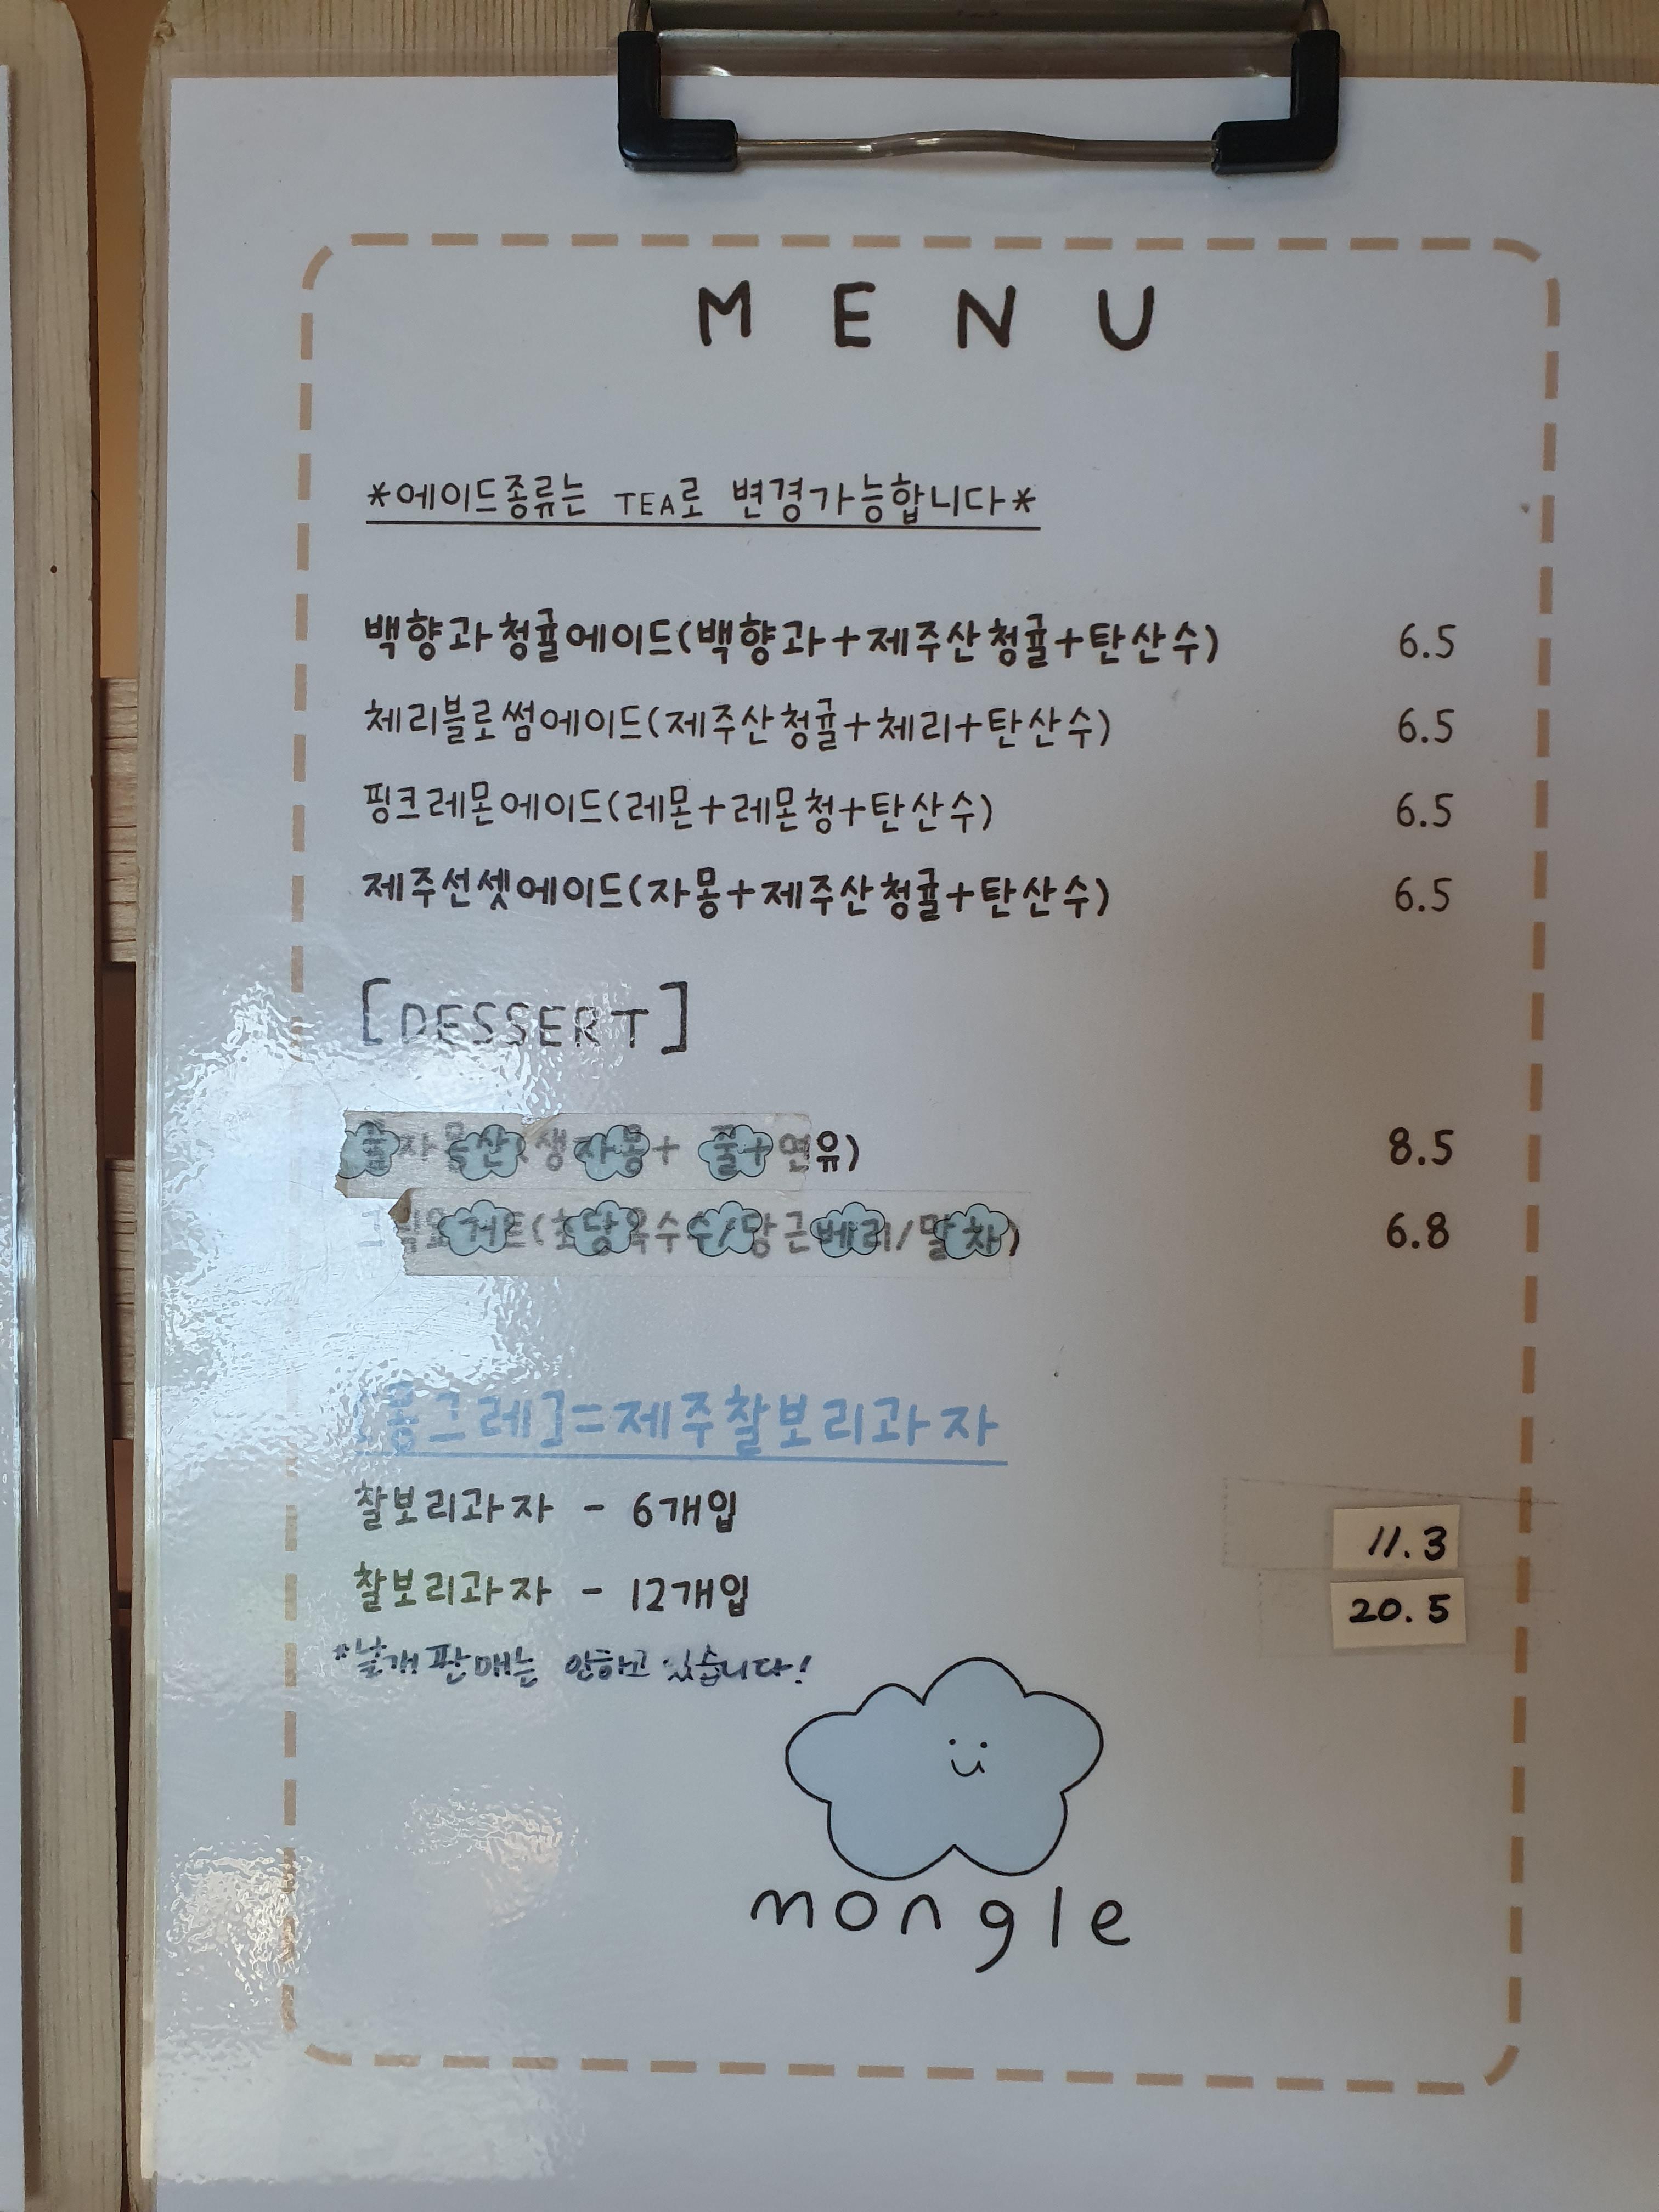 MENU
*에이드종류는 TEA로 변경가능합니다*
백향과청귤에이드(백향과+제주산청귤+탄산수) 6.5
체리블로썸에이드(제주산청귤+체리+탄산수) 6.5
핑크레몬에이드(레몬+레몬청+탄산수) 6.5
제주선셋에이드(자몽+제주산청귤+탄산수) 6.5
[DESSERT]
(생자몽+ 꿀+연유) 8.5
그릭요거트(초당옥수수/당근베리/말차) 6.8
[몽그레]=제주찰보리과자
찰보리과자 - 6개입 11.3
찰보리과자 - 12개입 20.5
*낱개 판매는 안하고 있습니다!
mongle